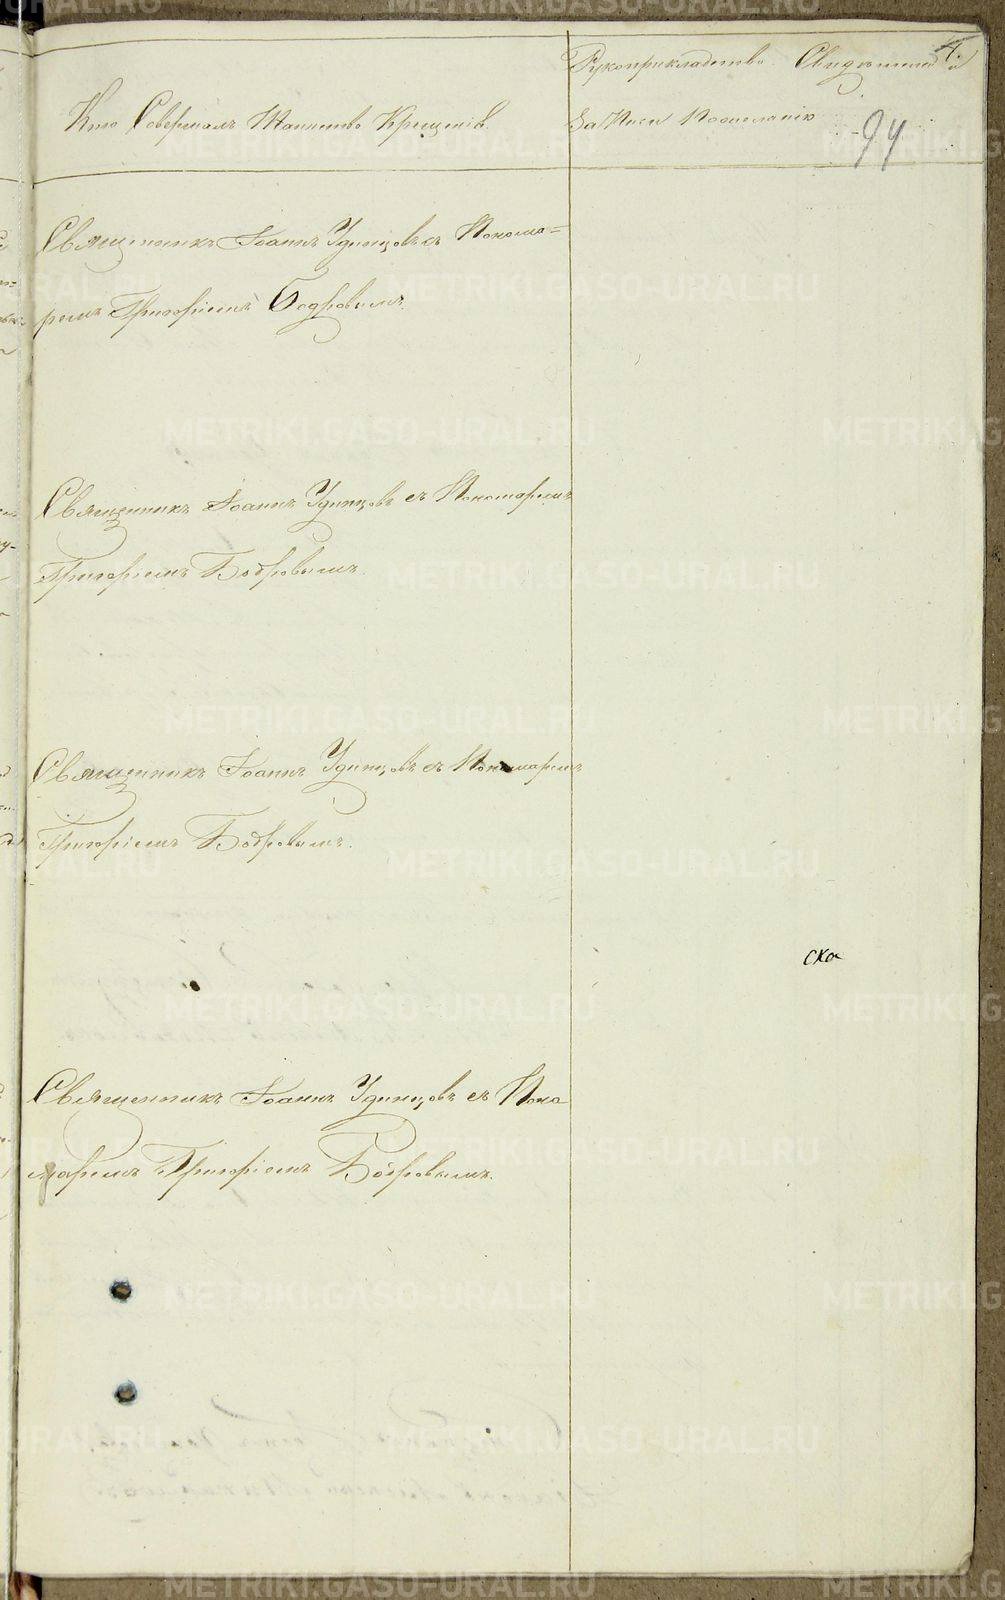 4.
Рукоприкладство Свидѣтелей
Кто Совершалъ Таинство Крещенія.
Записи по желанію
94
Священникъ Іоаннъ Удинцовъ съ Понома=
ремъ Григоріемъ Бодровымъ.
Священникъ Іоаннъ Удинцовъ съ Пономаремъ
Григоріемъ Бодровымъ.
Священникъ Іоаннъ Удинцовъ съ Пономаремъ
Григоріемъ Бодровымъ.
ска
Священникъ Іоаннъ Удинцовъ съ Поно
маремъ Григоріемъ Бодровымъ.
METRIKI.GASO-URAL.RU